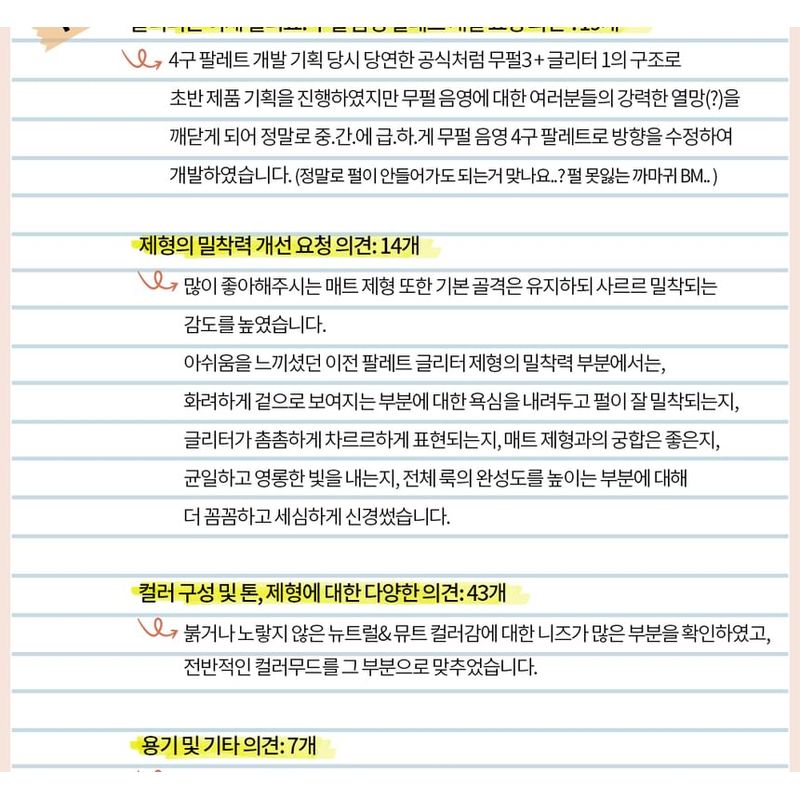 4구 팔레트 개발 기획 당시 당연한 공식처럼 무펄3 + 글리터 1의 구조로
초반 제품 기획을 진행하였지만 무펄 음영에 대한 여러분들의 강력한 열망(?)을
깨닫게 되어 정말로 중.간.에 급.하.게 무펄 음영 4구 팔레트로 방향을 수정하여
개발하였습니다. (정말로 펄이 안들어가도 되는거 맞나요..? 펄 못잃는 까마귀 BM.. )
제형의 밀착력 개선 요청 의견: 14개
많이 좋아해주시는 매트 제형 또한 기본 골격은 유지하되 사르르 밀착되는
감도를 높였습니다.
아쉬움을 느끼셨던 이전 팔레트 글리터 제형의 밀착력 부분에서는,
화려하게 겉으로 보여지는 부분에 대한 욕심을 내려두고 펄이 잘 밀착되는지,
글리터가 촘촘하게 차르르하게 표현되는지, 매트 제형과의 궁합은 좋은지,
균일하고 영롱한 빛을 내는지, 전체 룩의 완성도를 높이는 부분에 대해
더 꼼꼼하고 세심하게 신경썼습니다.
컬러 구성 및 톤, 제형에 대한 다양한 의견: 43개
붉거나 노랗지 않은 뉴트럴& 뮤트 컬러감에 대한 니즈가 많은 부분을 확인하였고,
전반적인 컬러무드를 그 부분으로 맞추었습니다.
용기 및 기타 의견: 7개